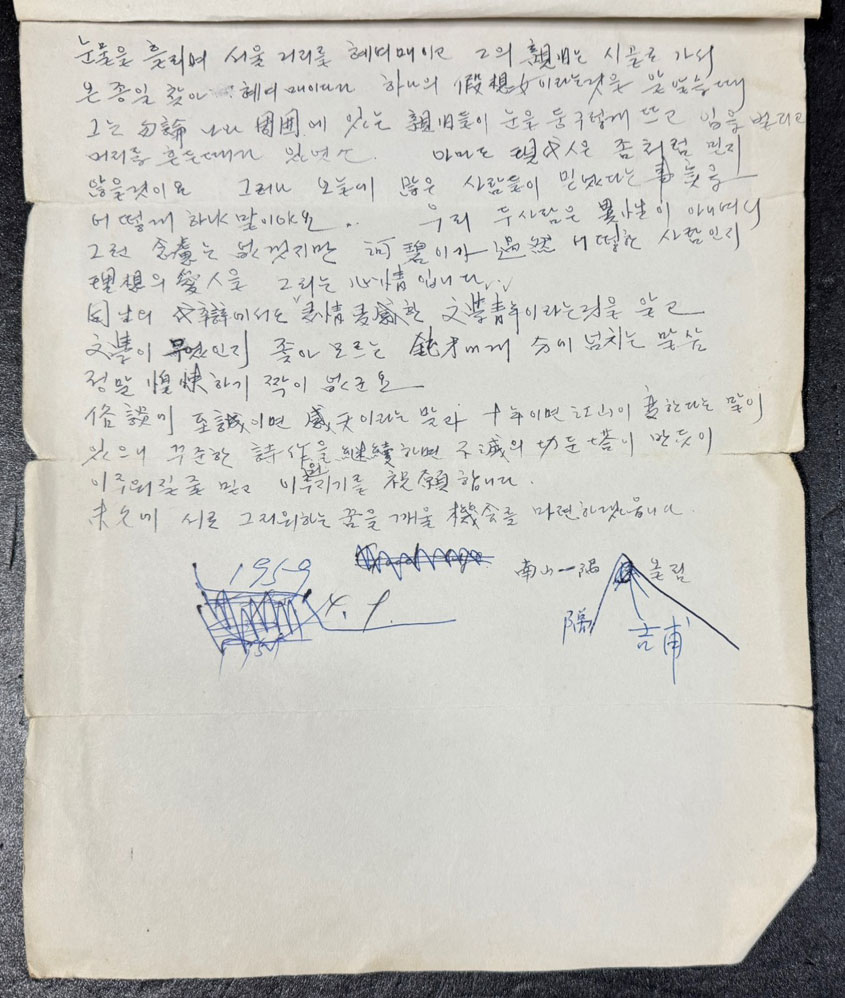 눈물을 흘리며 서울 거리를 헤매이고 그의 親旧는 시골로 가서
온종일 찾아 헤매이다가 하나의 假想女이라는것을 알았을때
그는 勿論 나와 周囲에 있는 親旧들이 눈을 둥구렇게 뜨고 입을 벌리고
머리를 흔든때가 있면서. 아마도 現代人은 좀처럼 믿지
않을것이요 그러나 오늘에 많은 사람들이 믿었다는 事實을
어떻게 하난 말이야요.. 우리 두사람은 異性이 아니면서
그런 念慮는 없겠지만 河碧이가 過然 어떠한 사람인지
理想의 愛人을 그리는 心情입니다..
문면의 文辭에서도 多情多感한 文學靑年이라는것을 알고
文學이 무엇인지 좋아 모르는 鈍才에게 分에 넘치는 말씀
정말 惶悚하기 짝이 없군요
俗談에 至誠이면 感天이라는 말과 十年이면 江山이 変한다는 말이
있으니 꾸준한 詩作을 継續하면 不滅의 功든塔이
이루워질줄 믿고 이루워지기를 祝願합니다.
未久에 서로 그리워하는 꿈을 깨울 機会를 마련하겠읍니다
1959
4. 9.
南山一隅
隱
吉甫